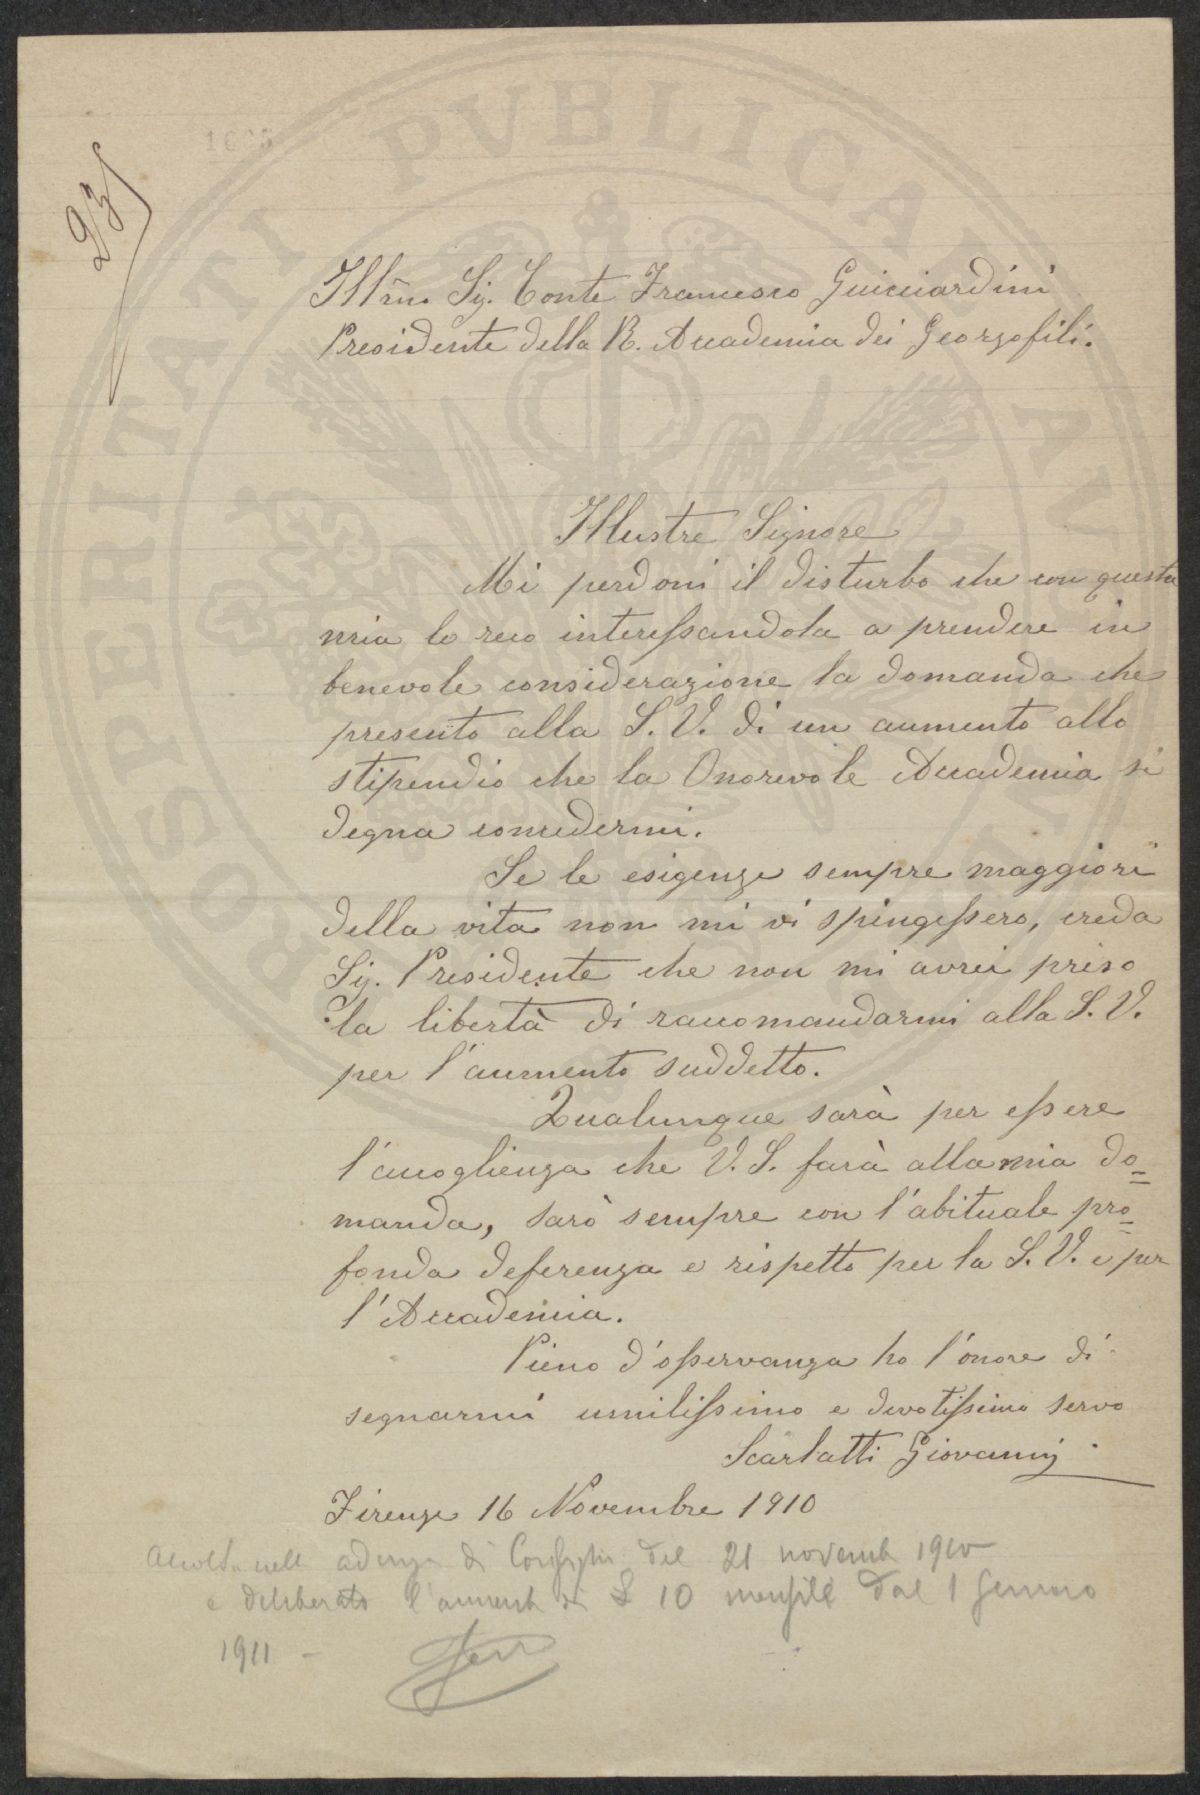 23
Illmo. Sig. Conte Francesco Guicciardini
Presidente della R. Accademia dei Georgofili.
Illustre Signore
Mi perdoni il disturbo che con questa
mia le reco interessandola a prendere in
benevole considerazione la domanda che
presento alla S. V. di un aumento allo
stipendio che la Onorevole Accademia si
degna concedermi.
Se le esigenze sempre maggiori
della vita non mi vi spingessero, creda
Sig. Presidente che non mi avrei preso
la libertà di raccomandarmi alla S. V.
per l'aumento suddetto.
Qualunque sarà per essere
l'accoglienza che V. S. farà alla mia do=
manda, sarò sempre con l'abituale pro=
fonda deferenza e rispetto per la S. V. e per
l'Accademia.
Pieno d'osservanza ho l'onore di
segnarmi umilissimo e devotissimo servo
Scarlatti Giovanni
Firenze 16 Novembre 1910
Accolta nell adunza di Consiglio del 21 novemb 1910
e deliberato l'aument di £ 10 mensili dal 1 Gennaio
1911 -
PROSPERITATI PVBLICAE AV